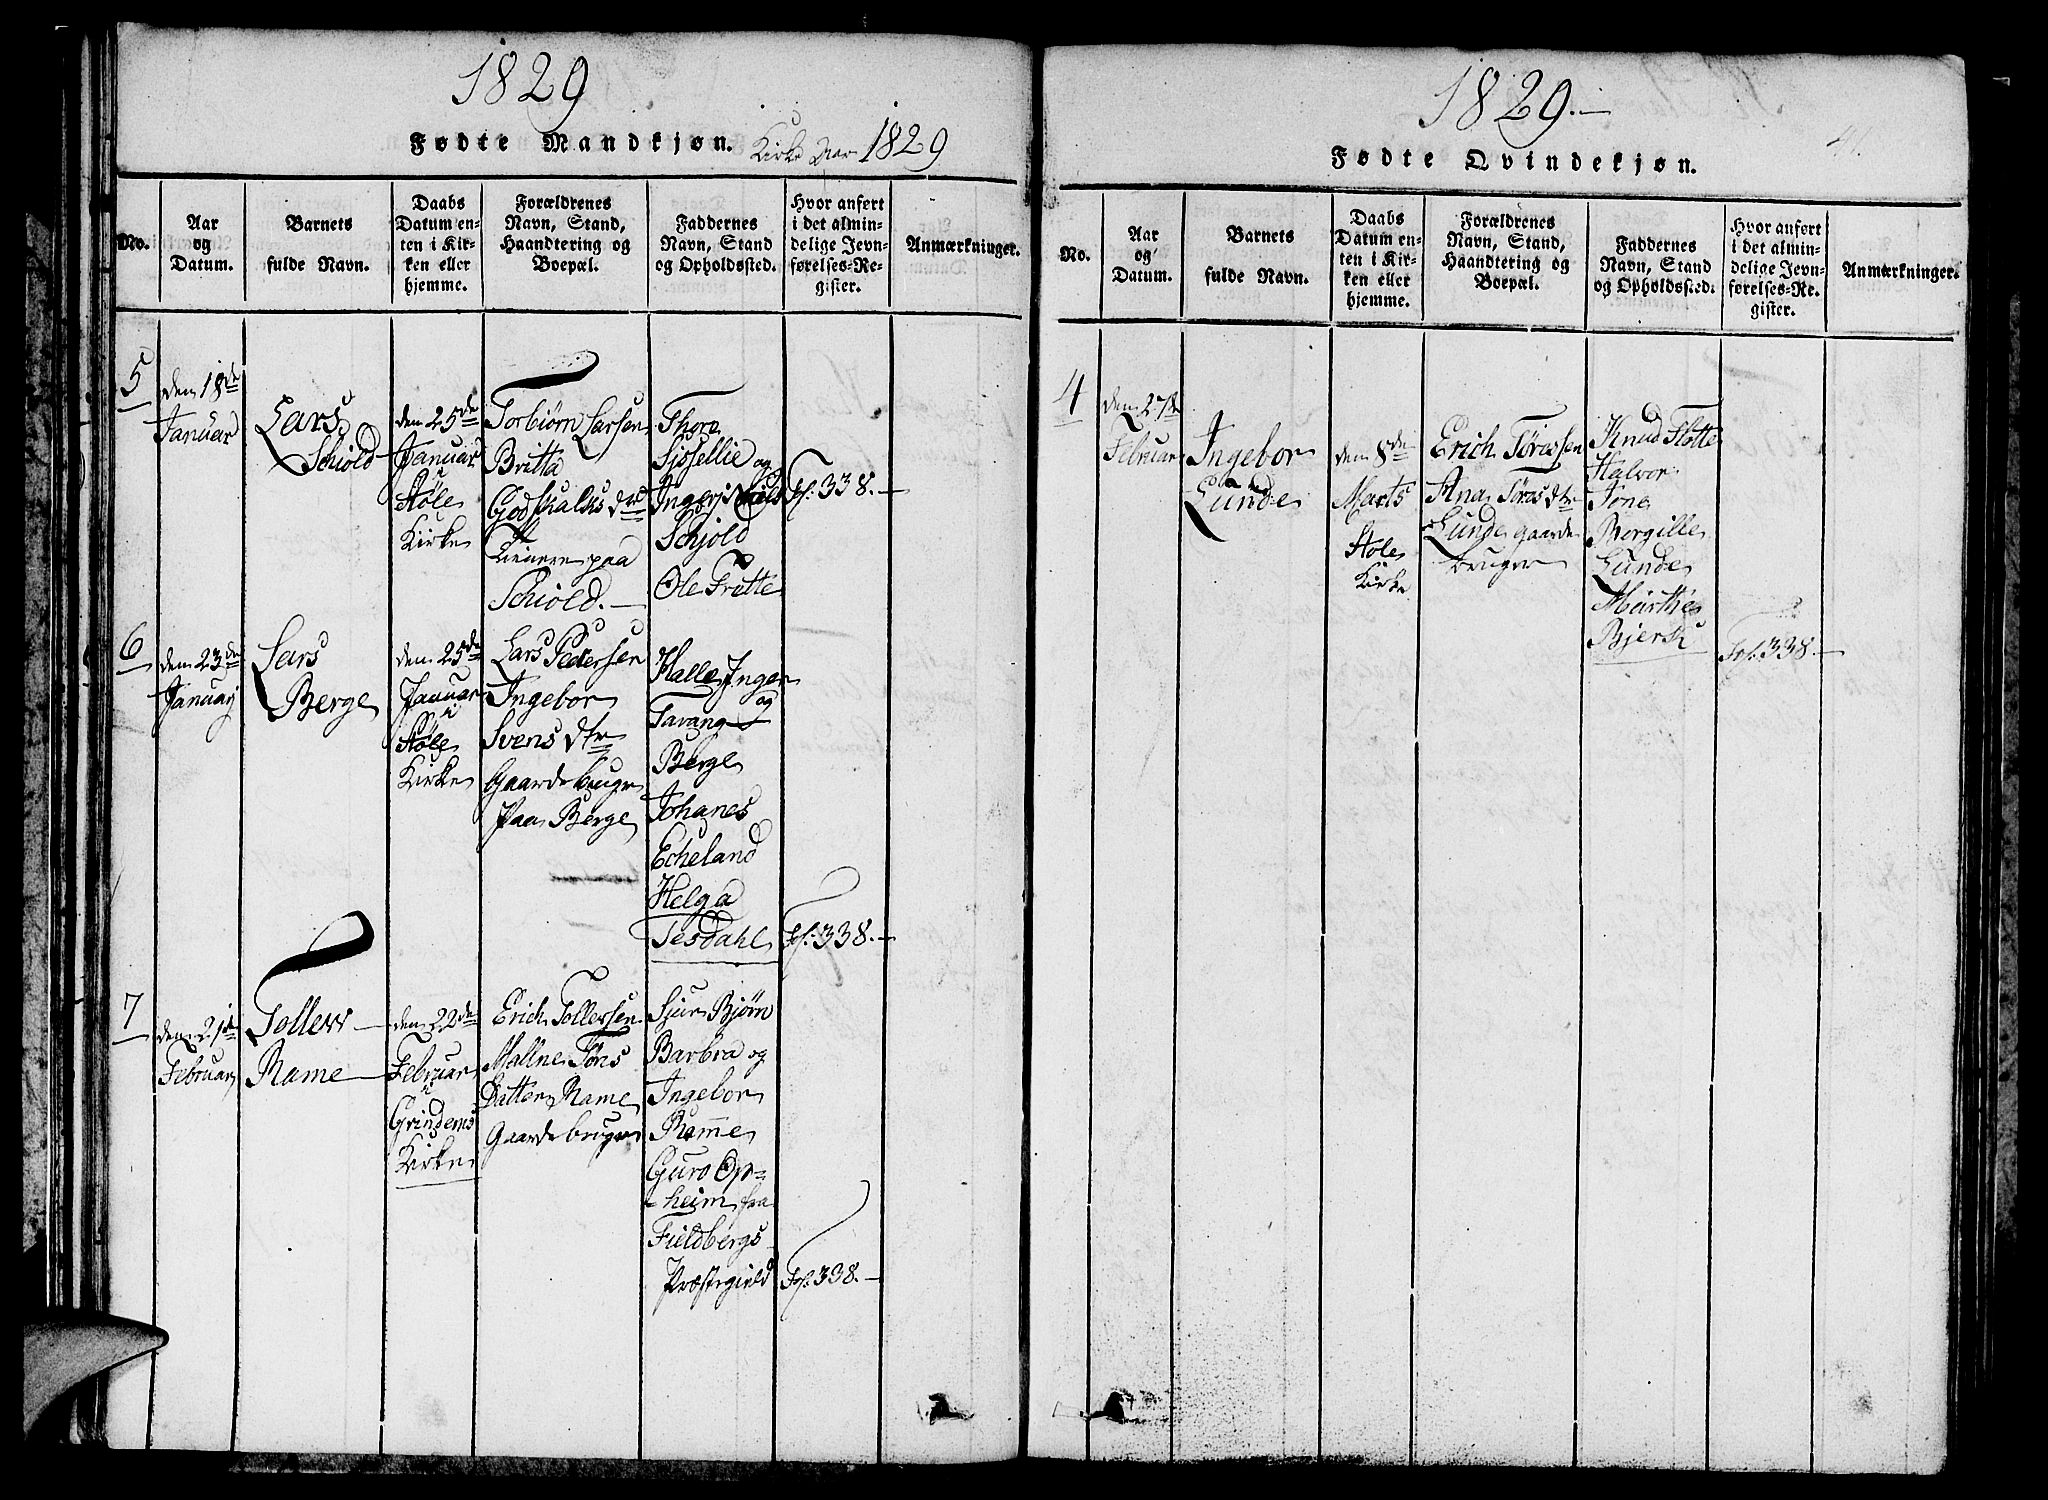 1829
Fødte Mandkjøn. Kirke Aar 1829
No.
Aar
og
Datum.
Barnets
fulde Navn.
Daabs
Datum en-
ten i Kir-
ken eller
hjemme.
Forældrenes
Navn, Stand,
Haandtering og
Boepæl.
Faddernes
Navn, Stand
og Opholdssted.
Hvor anført
i det almin-
delige Jevn-
førelses-Re-
gister.
Anmærkninger.
5
den 18de
Januar
Lars
Schiold
den 25de
Januar
i
Høle
Kirke
Torbiørn Larsen
Britta
Godskalks dtr
Leuere paa
Schiold.
Thore
Sissellie og
Schjold
Ole Tratte
Fol. 338.
6
den 23de
Januar
Lars
Berge
den 25de
Januar
i
Høle
Kirke
Lars Pedersen
Ingebor
Svens dtr
Gaardebruger
Paa Berge
Halle Inger
og
Tarang
Berge
Johanes
Echeland
Helga
Tesdahl
Fol. 338.
7
den 21de
Februar
Tollew
Rame
den 22de
Februar
i
Grindems
Kirke
Erich Tollersen
Mallne Tøns
Datter Rame
Gaardebruger
Sjur Bjørn
Barbra og
Ingebor
Rame
Guro Op-
heim fra
Fieldbergs
Præstegield
Fol. 338.
1829.
41.
Fødte Qvindekjøn.
No.
Aar
og
Datum.
Barnets
fulde Navn.
Daabs
Datum en-
ten i Kir-
ken eller
hjemme.
Forældrenes
Navn, Stand,
Haandtering og
Boepæl.
Faddernes
Navn, Stand
og Opholdssted.
Hvor anført
i det almin-
delige Jevn-
førelses-Re-
gister.
Anmærkninger.
4
den 27de
Februar
Ingebor
Lunde
den 8de
Marts
Høle
Kirke
Erich Tøressen
Ana Tøresdtr
Lunde gaarde
bruger
Knud Flotte
Halvor
Jone
Borgille
Lunde
Marthe
Bjersk
Fol. 338.